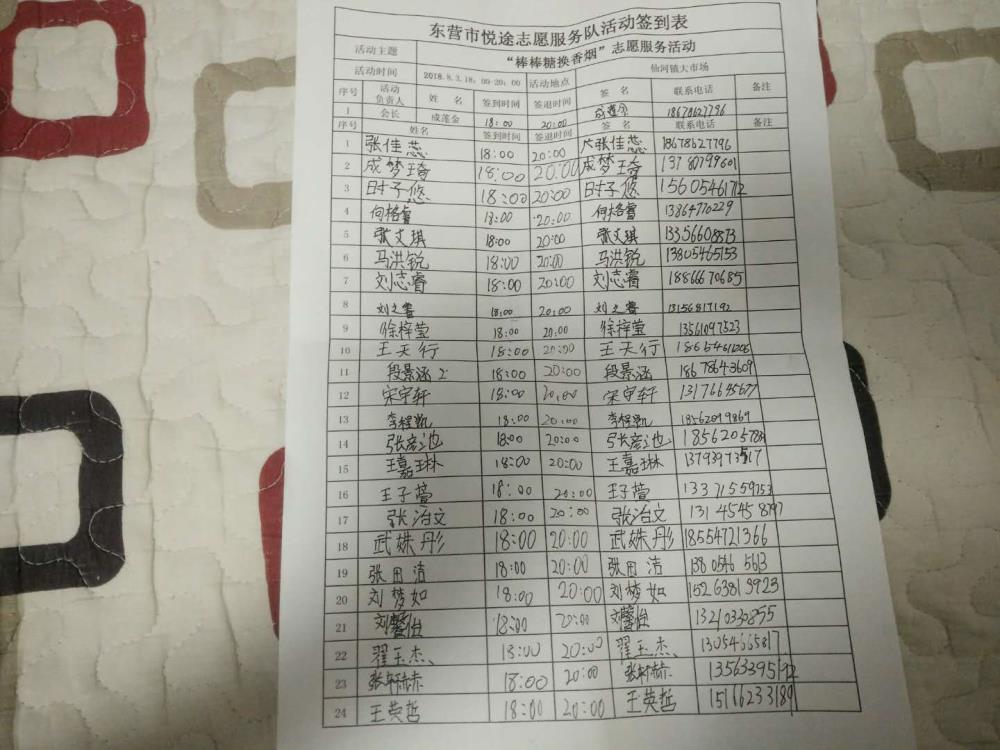 东营市悦途志愿服务队活动签到表
活动主题 “棒棒糖换香烟”志愿服务活动
活动时间 2018.8.3.18：00-20：00 活动地点 仙河镇大市场
序号 活动负责人 姓 名 签到时间 签退时间 签 名 联系电话 备注
1 会长 成莲金 18:00 20:00 成莲金 18678627796
序号 姓名 签到时间 签退时间 签 名 联系电话 备注
1 张佳蕊 18:00 20:00 张佳蕊 18678627796
2 成梦琦 18:00 20:00 成梦琦 13780799601
3 时子悠 18:00 20:00 时子悠 15605461712
4 向格睿 18:00 20:00 向格睿 13864770229
5 张文琪 18:00 20:00 张文琪 13356608873
6 马洪锐 18:00 20:00 马洪锐 13805465153
7 刘志睿 18:00 20:00 刘志睿 18866670685
8 刘之睿 18:00 20:00 刘之睿 13156817192
9 徐梓莹 18:00 20:00 徐梓莹 13561097523
10 王天行 18:00 20:00 王天行
11 段景涵 18:00 20:00 段景涵 18678643609
12 宋宇轩 18:00 20:00 宋宇轩 13176645677
13 李程凯 18:00 20:00 李程凯 18562099869
14 张彦池 18:00 20:00 张彦池
15 王嘉琳 18:00 20:00 王嘉琳
16 王子萱 18:00 20:00 王子萱 13371559753
17 张治文 18:00 20:00 张治文
18 武姝彤 18:00 20:00 武姝彤 18554721366
19 张田洁 18:00 20:00 张田洁
20 刘梦如 18:00 20:00 刘梦如 15263819723
21 刘馨怡 18:00 20:00 刘馨怡 13210330855
22 翟玉杰 18:00 20:00 翟玉杰 13054665817
23 张轩赫 18:00 20:00 张轩赫 13563395192
24 王英哲 18:00 20:00 王英哲 15166233189